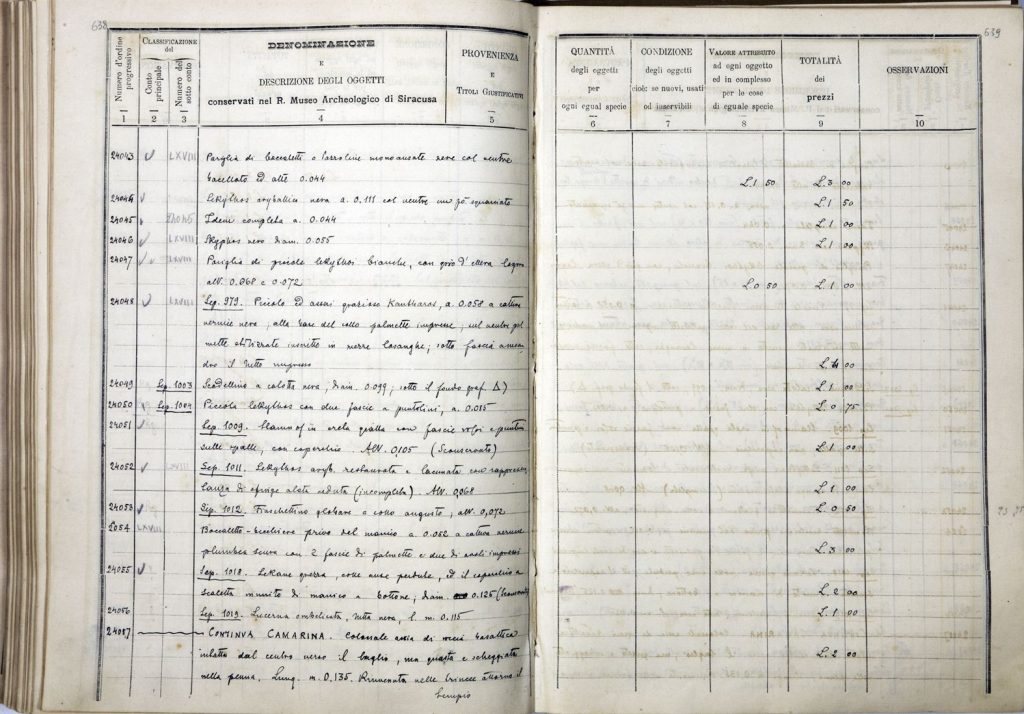 638
Numero d'ordine progressivo
CLASSIFICAZIONE del
Conto principale
Numero del sotto conto
DENOMINAZIONE
E
DESCRIZIONE DEGLI OGGETTI
conservati nel R. Museo Archeologico di Siracusa
PROVENIENZA
E
TITOLI GIUSTIFICATIVI
1 2 3 4 5
24043 LXVIII Pariglia di boccaletti o monoansate nere col ventre
baccellato ed alte 0.044
24044 Lekythos aryballica nera a. 0.111 col ventre un pò squarciato
24045 24045 Idem completa a. 0.044
24046 LXVIII Skyphos nero diam. 0.055
24047 LXVIII Pariglia di piccole lekythoi bianche, con d'edera
alt. 0.068 e 0.072
24048 LXVIII Sep. 979. Piccolo ed assai grazioso Kantharos, a. 0.058 a cattiva
vernice nera; alla base del collo palmette impresse; nel ventre pal
mette inscritte in mezze losanghe; sotto fascia
il tutto impresso
24049 Sep. 1003 Scodellino a calotta nera, diam. 0.099; sotto il fondo graf. Δ)
24050 Sep. 1004 Piccola lekythos con due fascie a puntolini, a. 0.085
24051 Sep. 1009. Stamnos in creta gialla con fascie e punti
sulle spalle, con coperchio. Alt. 0,105 (Sconservato)
24052 LXVIII Sep. 1011. Lekythos aryb. restaurata e lacunata con rappresen
tanza di sfinge alata seduta (incompleta). Alt. 0,068
24053 Sep. 1012. Fiaschettino globare a collo angusto, alt. 0,072
2054 LXVIII Boccaletto-bicchiere privo del manico a. 0.082 a cattiva vernice
plumbea scura con 2 fascie di palmette e due di ovoli impressi
24055 Sep. 1018. Lekane grezza, anse perdute, ed il coperchio a
scaletta munito di manico a bottone; diam. 0.125
24056 Sep. 1019. Lucerna ombelicata, tutta nera, l. m. 0.115
24087 CONTINUA CAMARINA. Colossale ascia di roccia basaltica
intatta dal centro verso il taglio, ma guasta e scheggiata
nella penna. Lung. m. 0.135. Rinvenuta nelle trincee attorno il
tempio
639
QUANTITÀ
degli oggetti
per
ogni egual specie
CONDIZIONE
degli oggetti
cioè: se nuovi, usati
od inservibili
VALORE ATTRIBUITO
ad ogni oggetto
ed in complesso
per le cose
di eguale specie
TOTALITÀ
dei
prezzi
OSSERVAZIONI
6 7 8 9 10
L. 1 50 L. 3 00
L. 1 50
L. 1 00
L. 1 00
L. 0 50 L. 1 00
L. 4 00
L. 1 00
L. 0 75
L. 1 00
L. 1 00
L. 0 50
L. 3 00
L. 2 00
L. 1 00
L. 2 00